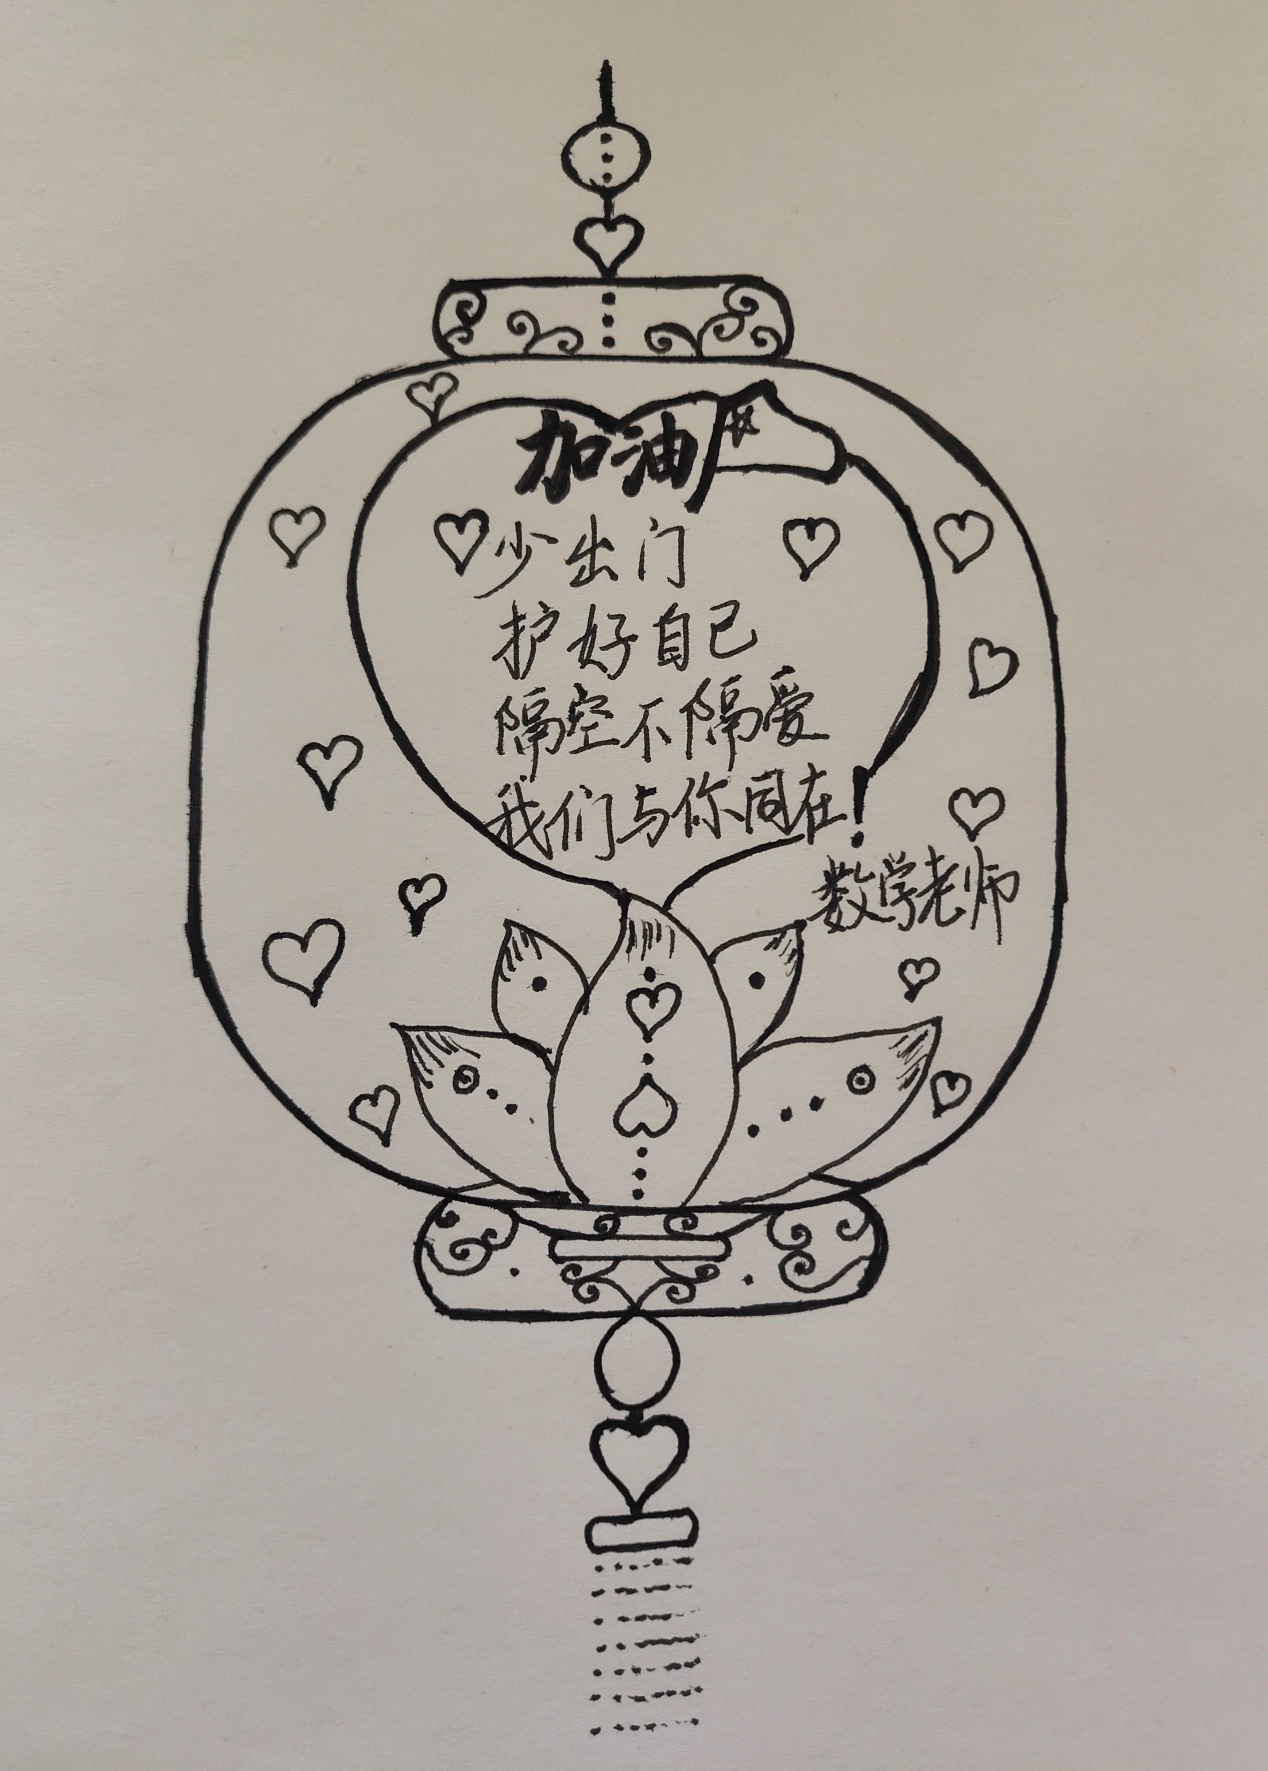 加油
少出门
护好自己
隔空不隔爱
我们与你同在!
数学老师